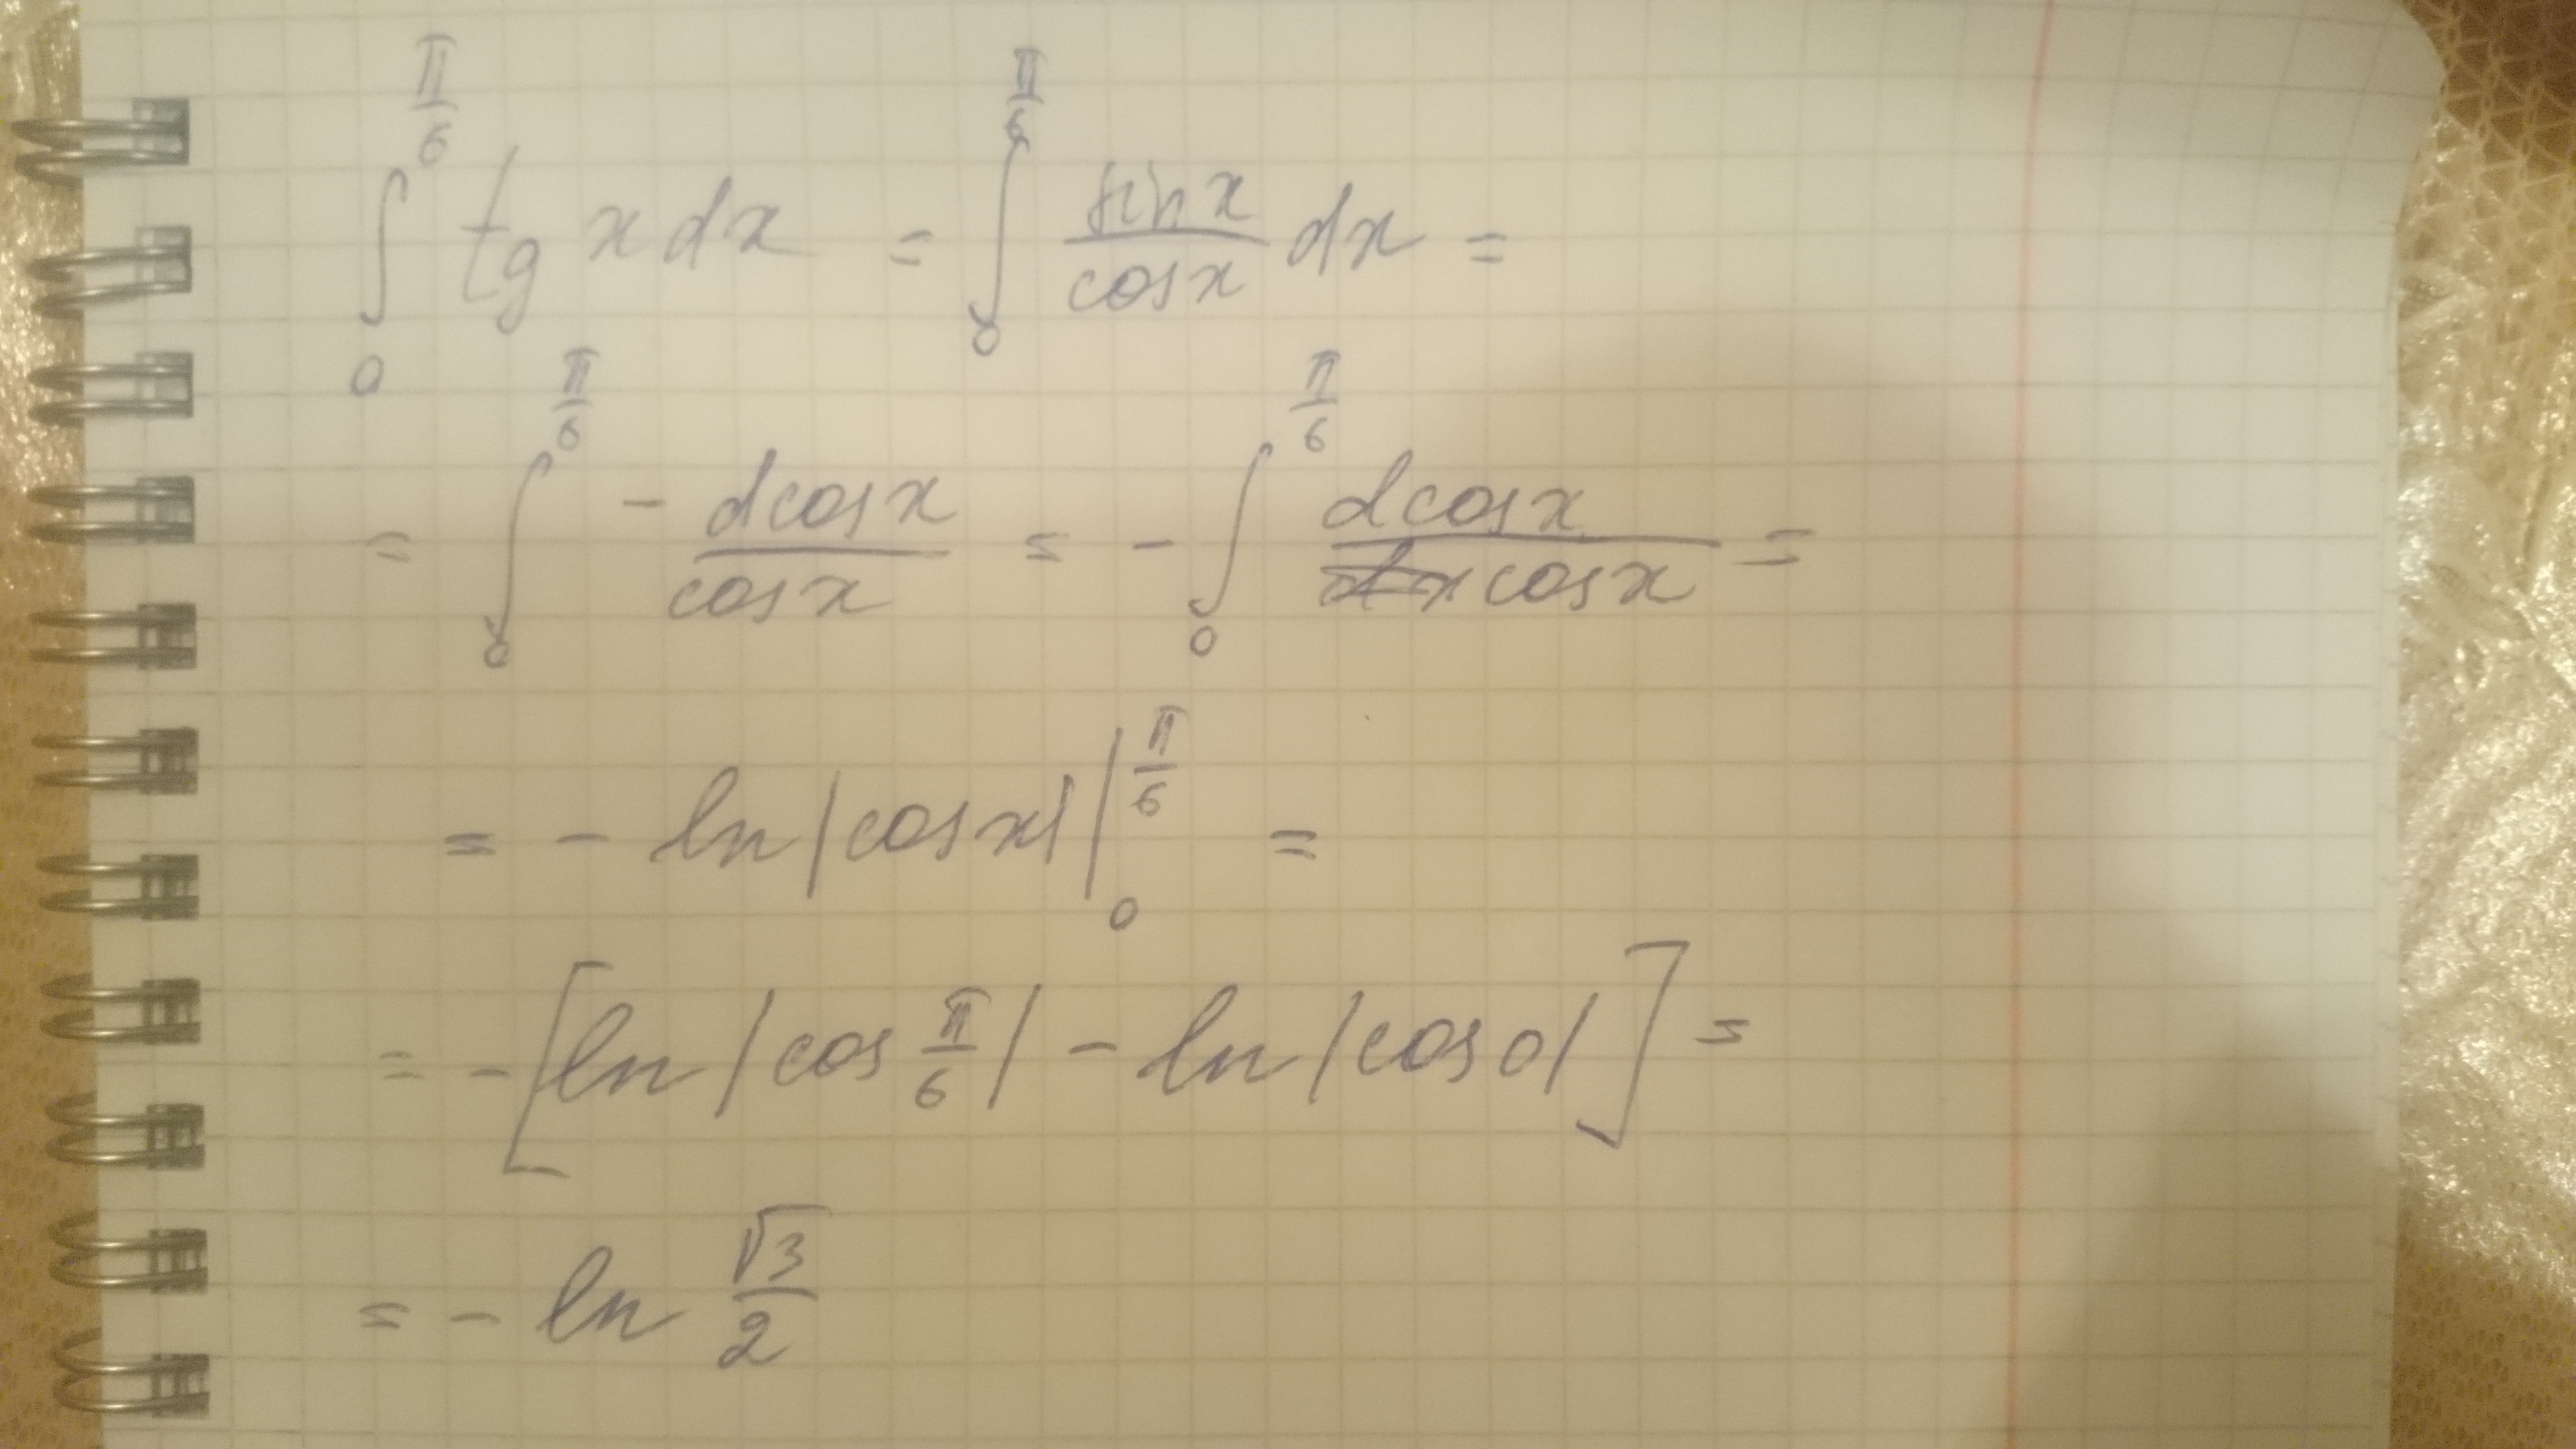 ∫₀^{π/6} tg x dx = ∫₀^{π/6} sin x / cos x dx =
= ∫₀^{π/6} - dcos x / cos x = - ∫₀^{π/6} dcos x / cos x =
= - ln |cos x| |₀^{π/6} =
= - [ln |cos π/6| - ln |cos 0|] =
= - ln √3/2